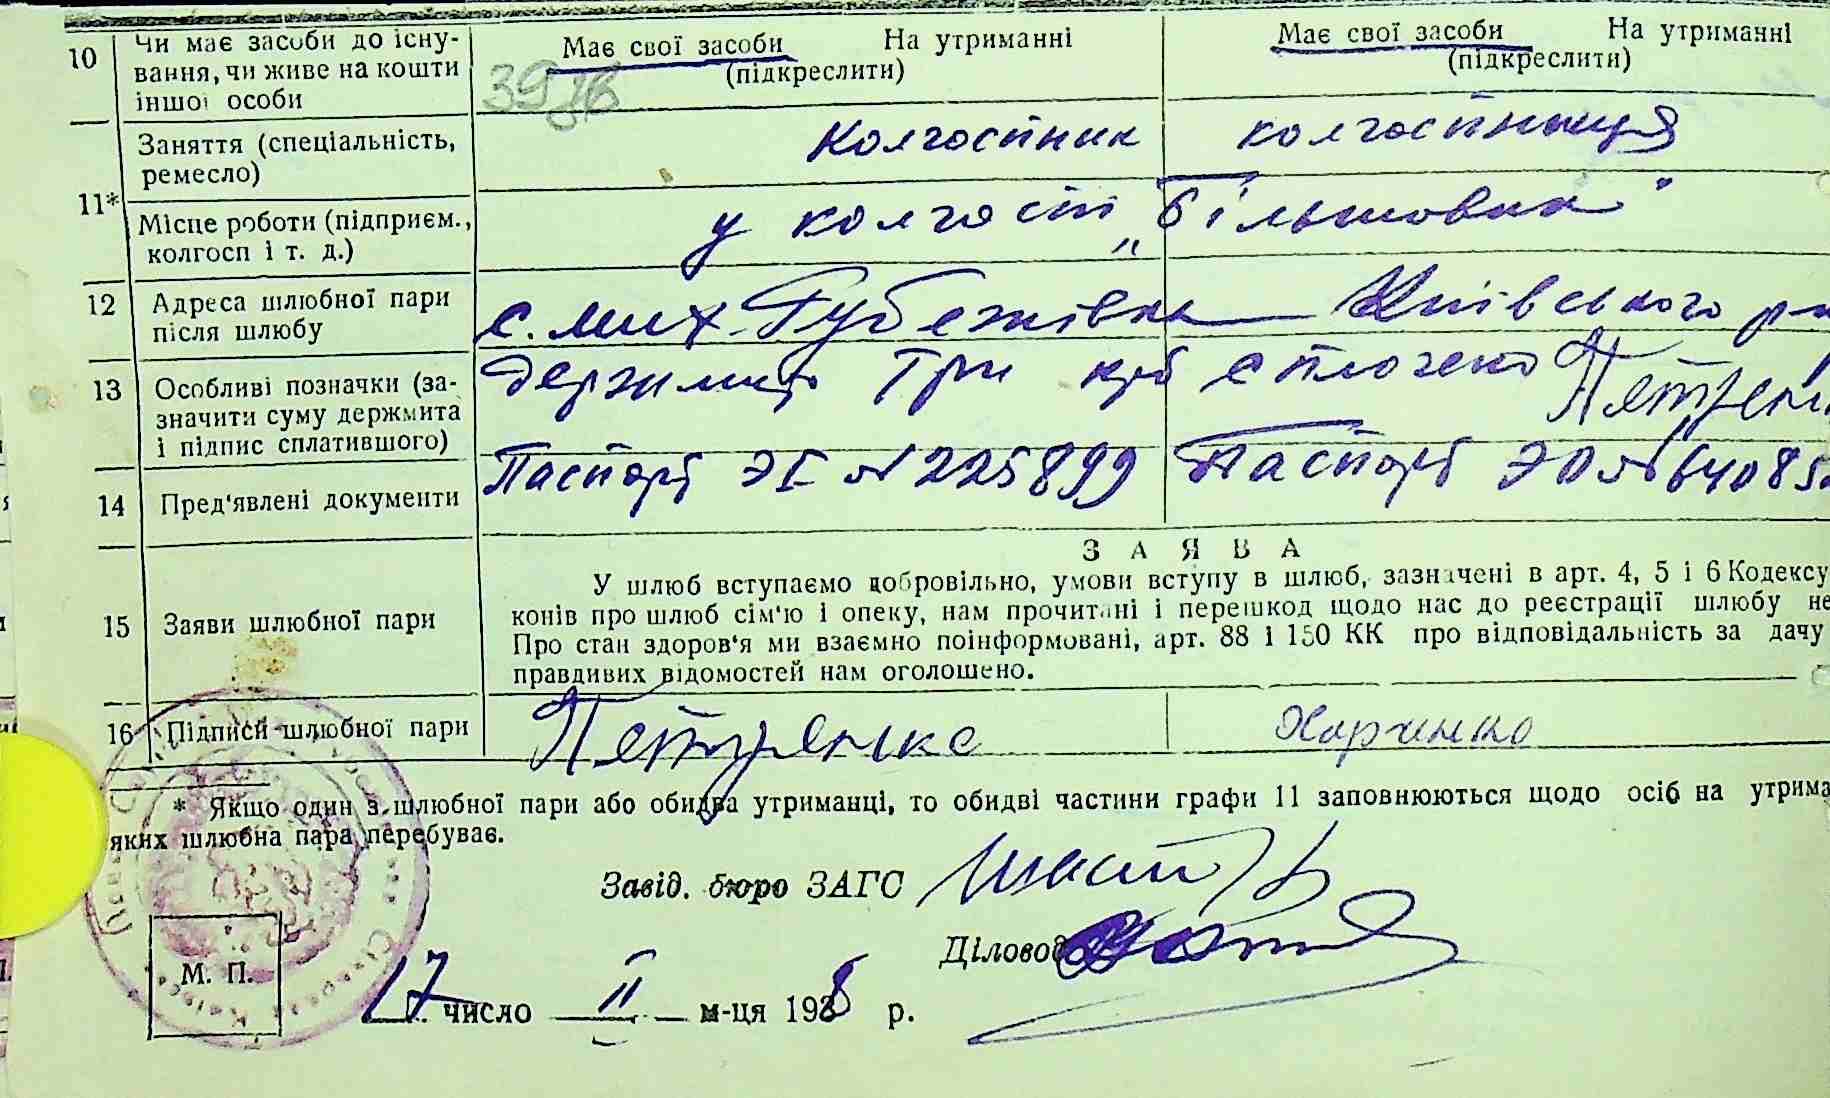 10 Чи має засоби до існу- Має свої засоби На утриманні Має свої засоби На утриманні
вання, чи живе на кошти (підкреслити) (підкреслити)
іншої особи
39
Заняття (спеціальність, Колгоспник колгоспниця
ремесло)
11*
Місце роботи (підприєм., у колгоспі „Більшовик"
колгосп і т. д.)
12 Адреса шлюбної пари с. Мих. Рубежівка Київського р-н
після шлюбу
13 Особливі позначки (за- Держмито Три крб сплочено Петренк
значити суму держмита
і підпис сплатившого)
14 Пред'явлені документи Паспорт ЭI № 225899 Паспорт ЭО № 64085
З А Я В А
15 Заяви шлюбної пари У шлюб вступаємо добровільно, умови вступу в шлюб, зазначені в арт. 4, 5 і 6 Кодексу
конів про шлюб сім'ю і опеку, нам прочитані і перешкод щодо нас до реєстрації шлюбу не
Про стан здоров'я ми взаємно поінформовані, арт. 88 і 150 КК про відповідальність за дачу
правдивих відомостей нам оголошено.
16 Підписи шлюбної пари Петренко Харченко
* Якщо один з шлюбної пари або обидва утриманці, то обидві частини графи 11 заповнюються щодо осіб на утрима
яких шлюбна пара перебуває.
Завід. бюро ЗАГС
Діловод
М. П.
17 число II м-ця 1938 р.